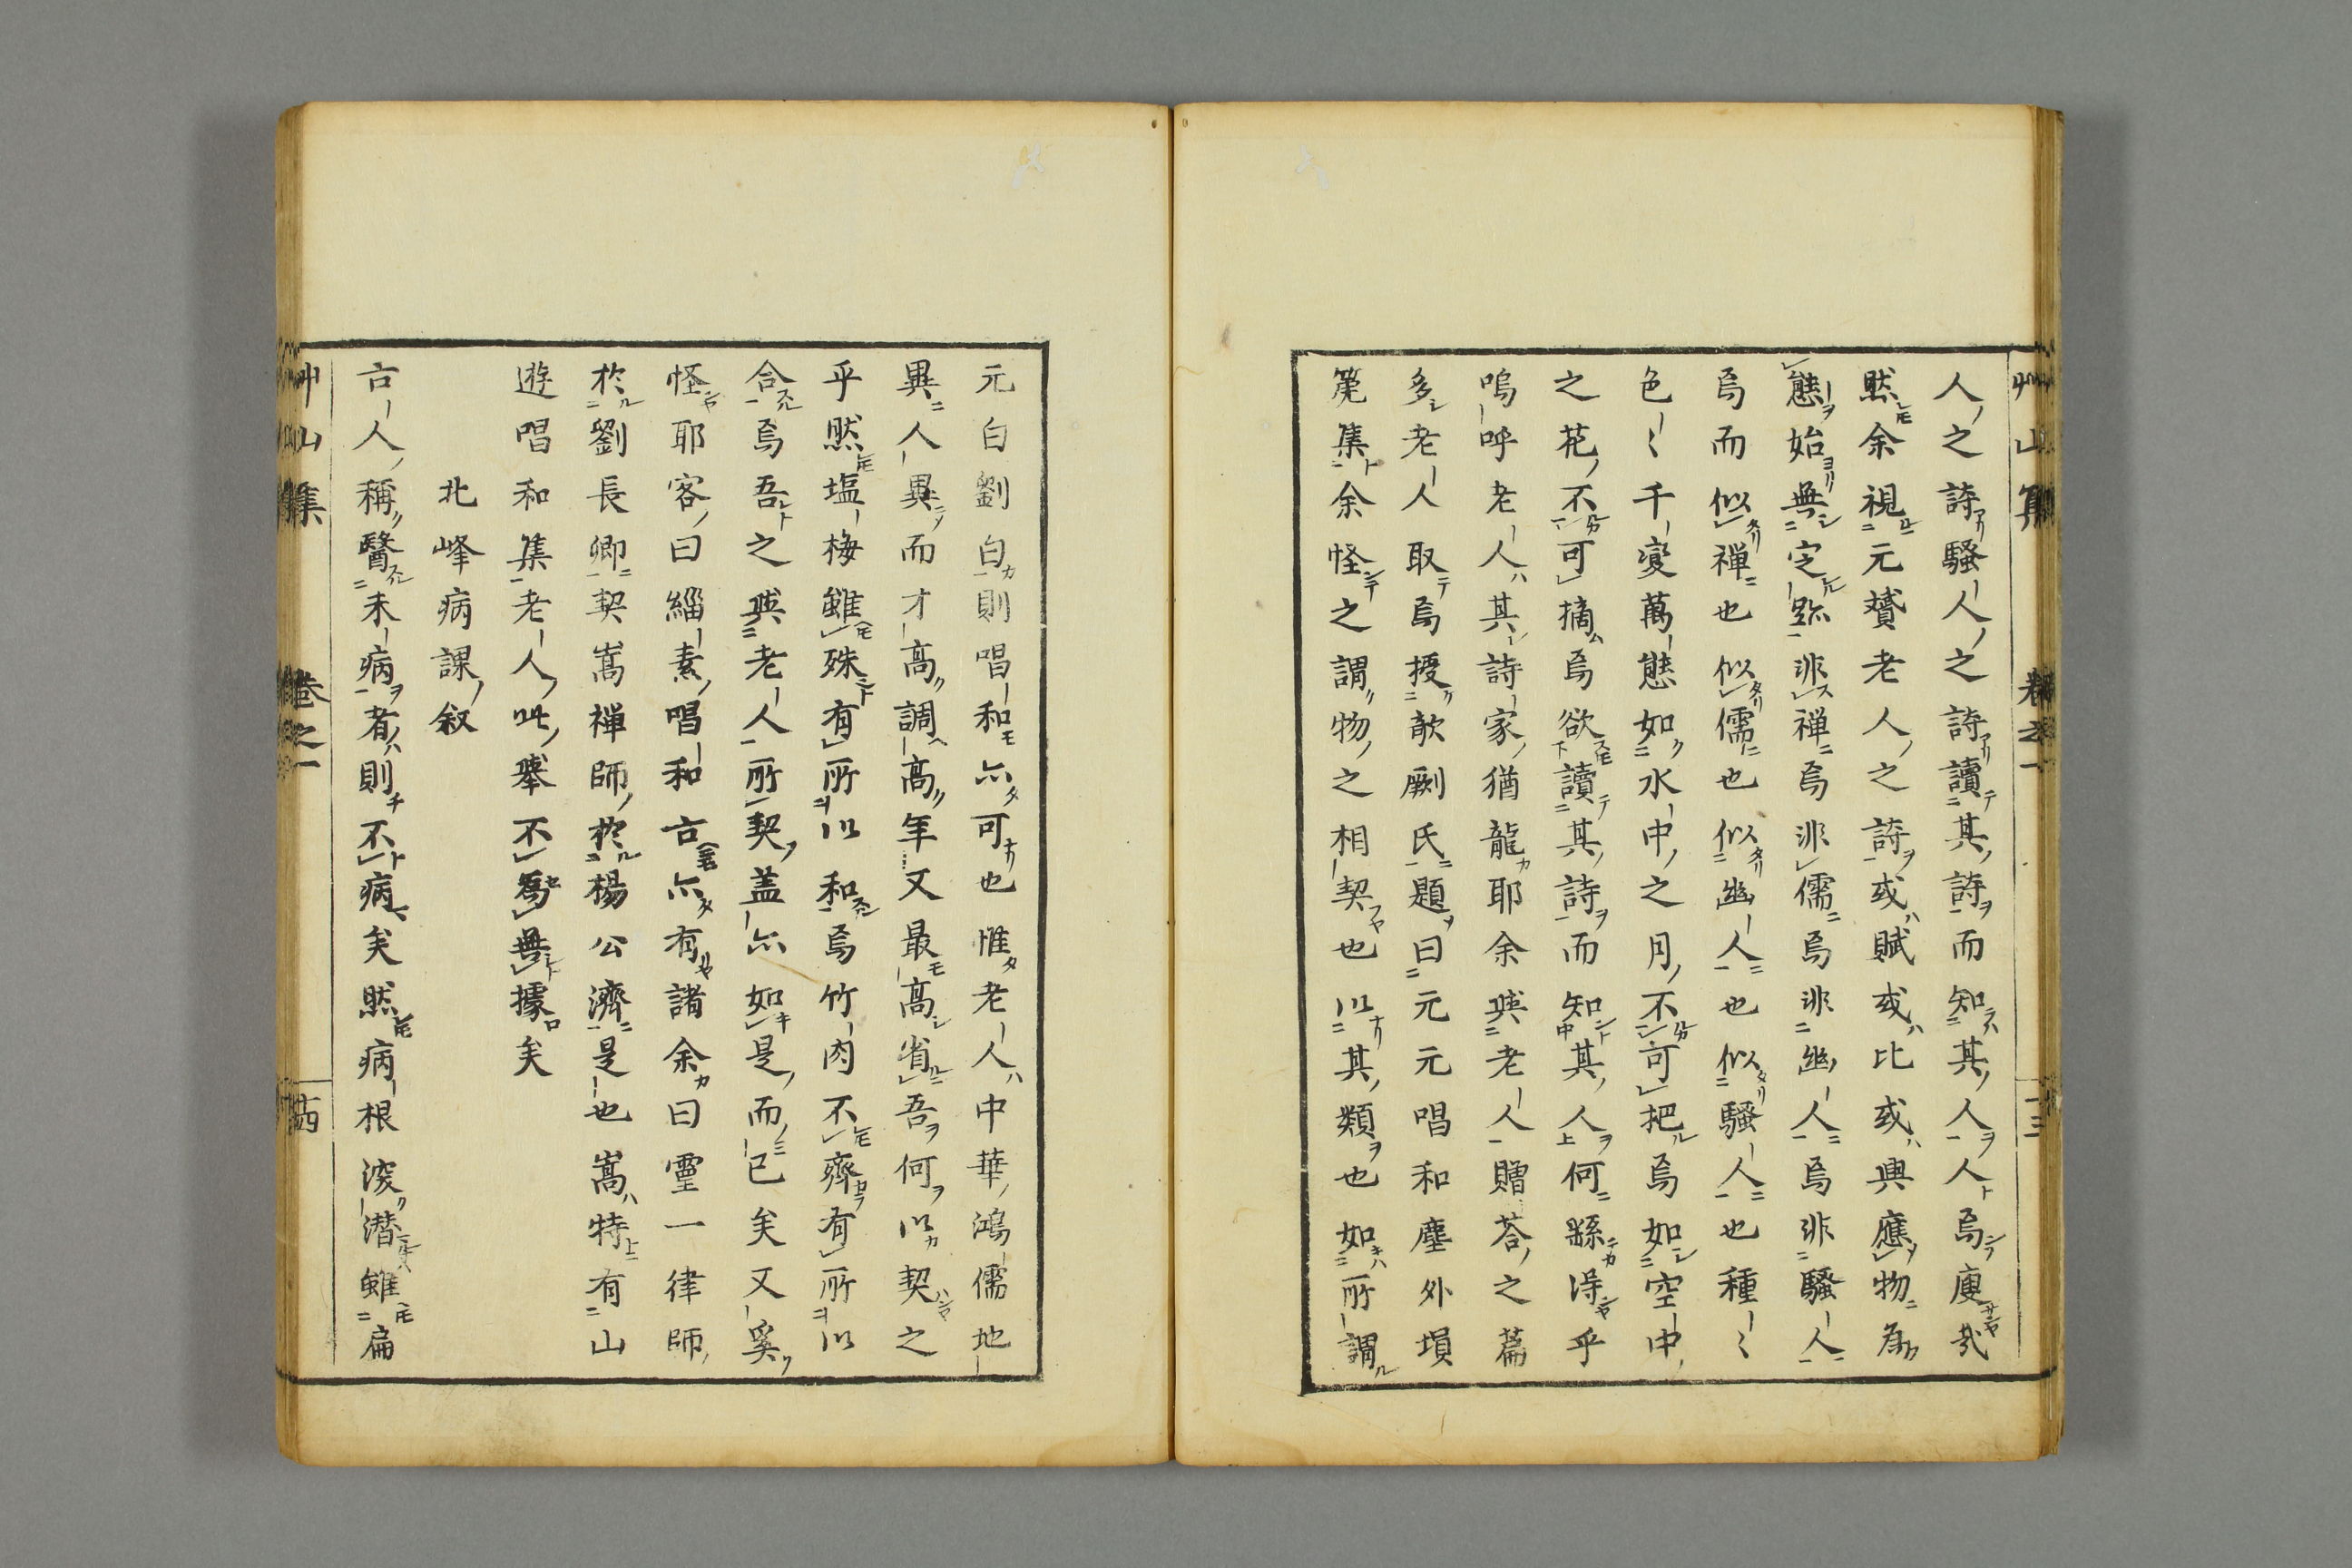 艸山集 卷之一 十三
人之詩騷人之詩讀其詩而知其人人焉廋哉
然余視元贇老人之詩或賦或比或興應物為
態始無定跡非禪焉非儒焉非幽人焉非騷人
焉而似禪也似儒也似幽人也似騷人也種〻
色〻千變萬態如水中之月不可把焉如空中
之花不可摘焉欲讀其詩而知其人何繇得乎
嗚呼老人其詩家猶龍耶余與老人贈荅之篇
多老人取焉授劂氏題曰元元唱和塵外塤
箎集余怪之謂物之相契也以其類也如所謂
元白劉白則唱和亦可也惟老人中華鴻儒地
異人異而才高調高年又最高省吾何以契之
乎然塩梅雖殊有所以和焉竹肉不齊有所以
合焉吾之與老人所契盖亦如是而已矣又奚
怪耶客曰緇素唱和古亦有諸余曰靈一律師
於劉長卿契嵩禪師於楊公濟是也嵩特有山
遊唱和集老人此舉不為無據矣
北峰病課叙
古人稱醫未病者則不病矣然病根深潜雖扁
艸山集 卷之一 十四